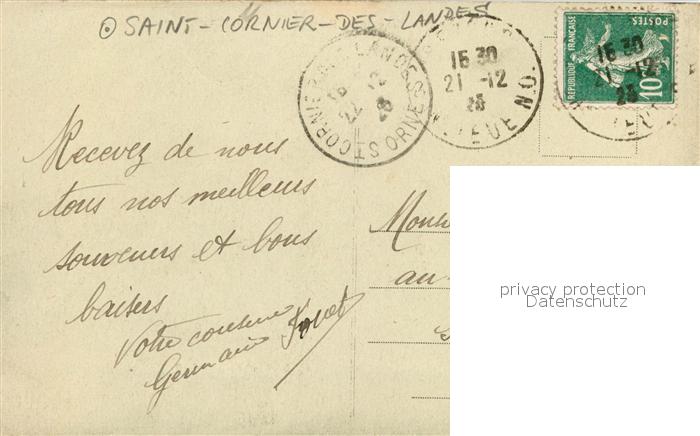 SAINT-CORNIER-DES-LANDES
ST CORNIER DES LANDES
ORNE
22 - 12
15 30
21 -12
25
N.O.
15 30
21 -12
25
POSTES
REPUBLIQUE FRANÇAISE
10
Recevez de nous
tous nos meilleurs
souvenirs et bons
baisers
Votre cousine
Germaine
Mons
au
privacy protection
Datenschutz